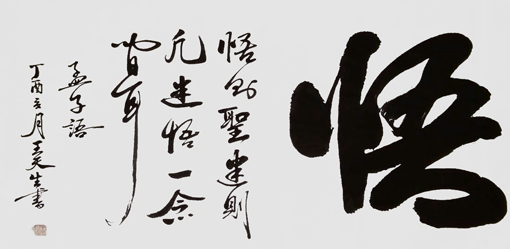 悟
悟則聖迷則
凡迷悟一念
間耳
孟子語
丁酉月王生書